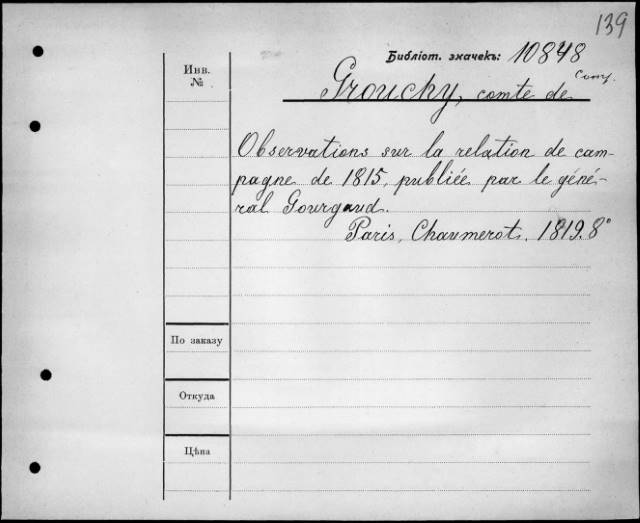 139
Библіот. значекъ: 10848
Инв.
№
Grouchy, comte de
Observations sur la relation de cam-
pagne de 1815, publiée par le géné-
ral Gourgaud.
Paris, Chaumerot. 1819. 8°
По заказу
Откуда
Цѣна